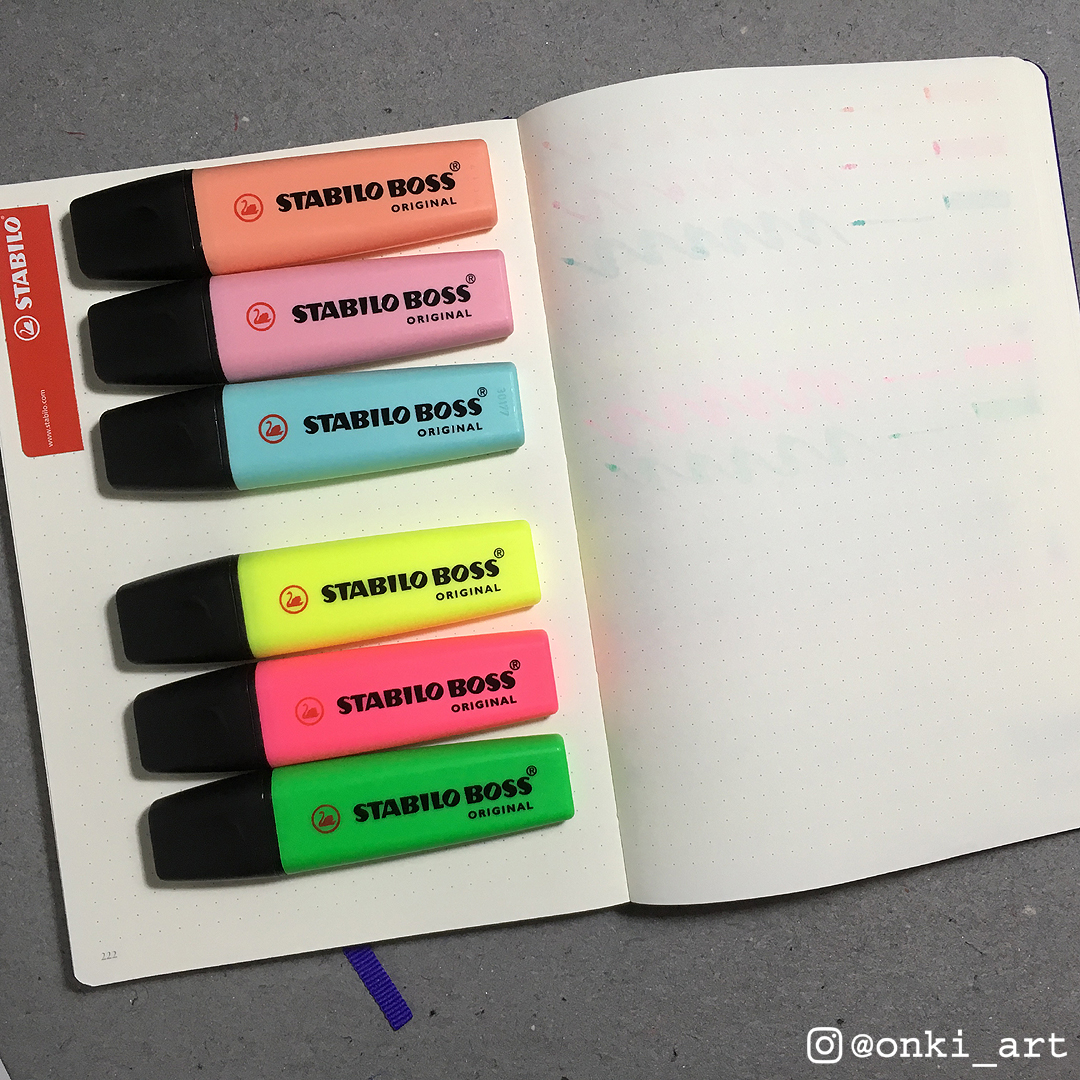 STABILO®
www.stabilo.com
STABILO BOSS®
ORIGINAL
STABILO BOSS®
ORIGINAL
STABILO BOSS®
ORIGINAL
307177
STABILO BOSS®
ORIGINAL
STABILO BOSS®
ORIGINAL
STABILO BOSS®
ORIGINAL
222
@onki_art